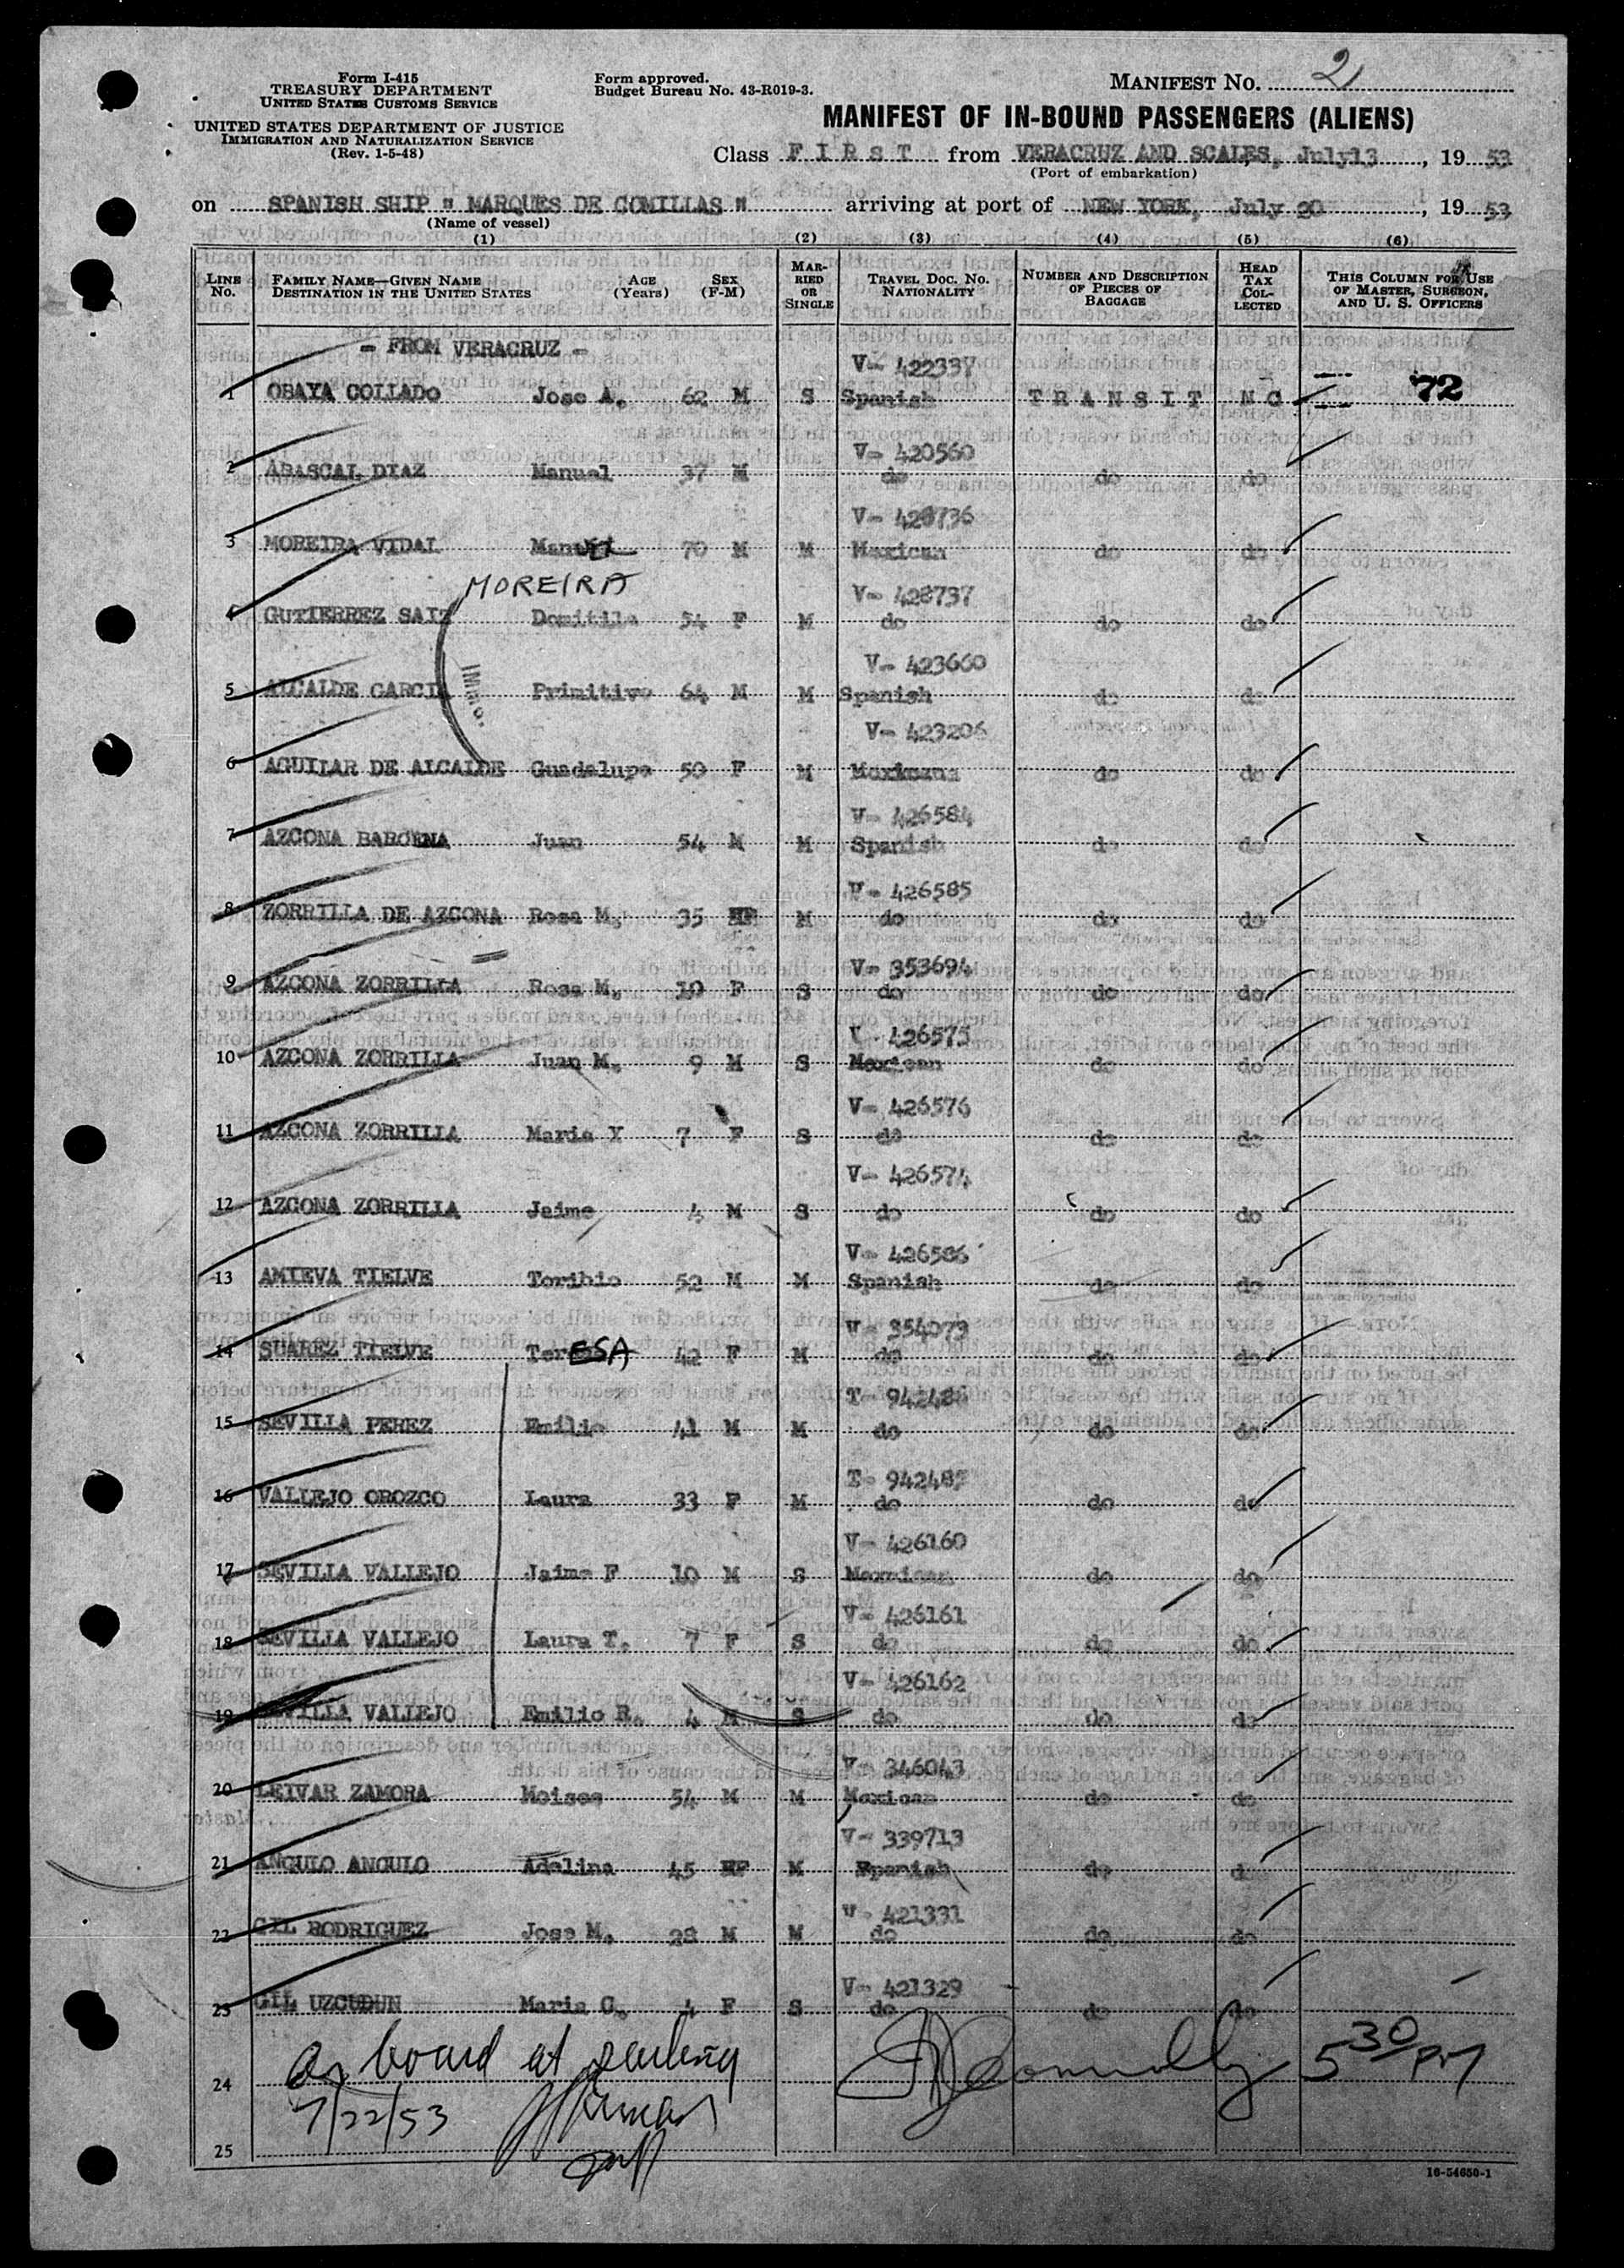 Form I-415
TREASURY DEPARTMENT
UNITED STATES CUSTOMS SERVICE
UNITED STATES DEPARTMENT OF JUSTICE
IMMIGRATION AND NATURALIZATION SERVICE
(Rev. 1-5-48)
Form approved.
Budget Bureau No. 43-R019-3.
MANIFEST No. 2
MANIFEST OF IN-BOUND PASSENGERS (ALIENS)
Class FIRST from VERACRUZ AND SCALES, July 13, 19 53
(Port of embarkation)
on SPANISH SHIP " MARQUES DE COMILLAS " arriving at port of NEW YORK, July 20, 19 53
(Name of vessel)
(1) (2) (3) (4) (5) (6)
LINE No. FAMILY NAME—GIVEN NAME DESTINATION IN THE UNITED STATES AGE (Years) SEX (F-M) MARRIED OR SINGLE TRAVEL DOC. NO. NATIONALITY NUMBER AND DESCRIPTION OF PIECES OF BAGGAGE HEAD TAX COLLECTED THIS COLUMN FOR USE OF MASTER, SURGEON, AND U. S. OFFICERS
- FROM VERACRUZ -
V- 422337
1 OBAYA COLLADO Jose A. 62 M S Spanish TRANSIT NO 72
V- 420560
2 ABASCAL DIAZ Manuel 37 M do do do
V- 428736
3 MOREIRA VIDAL Manuel 70 M M Mexican do do
MOREIRA
V- 428737
4 GUTIERREZ SAIZ Domitila 54 F M do do do
V- 423660
5 ALCALDE GARCIA Primitivo 64 M M Spanish do do
IMMG.
V- 423206
6 AGUILAR DE ALCALDE Guadalupe 50 F M Mexicana do do
V- 426584
7 AZCONA BARCENA Juan 54 M M Spanish do do
V- 426585
8 ZORRILLA DE AZCONA Rosa M. 35 F M do do do
V- 353694
9 AZCONA ZORRILLA Rosa M. 10 F S do do do
V- 426575
10 AZCONA ZORRILLA Juan M. 9 M S Mexican do do
V- 426576
11 AZCONA ZORRILLA Maria Y 7 F S do do do
V- 426574
12 AZCONA ZORRILLA Jaime 4 M S do do do
V- 426586
13 AMIEVA TIELVE Toribio 52 M M Spanish do do
V- 354073
14 SUAREZ TIELVE TerESA 42 F M do do do
T- 942486
15 SEVILLA PEREZ Emilio 41 M M do do do
T- 942487
16 VALLEJO OROZCO Laura 33 F M do do do
V- 426160
17 SEVILLA VALLEJO Jaime F 10 M S Mexican do do
V- 426161
18 SEVILLA VALLEJO Laura T. 7 F S do do do
V- 426162
19 SEVILLA VALLEJO Emilio R. 4 M S do do do
V- 346043
20 LEIVAR ZAMORA Moises 54 M M Mexican do do
V- 339713
21 ANGULO ANGULO Adelina 45 F M Spanish do do
V- 421331
22 GIL RODRIGUEZ Jose M. 28 M M do do do
V- 421329
23 GIL UZCUDUN Maria C. 4 F S do do do
On board at sailing Connolly 5 30 PM
24
7/22/53
25
16-54650-1